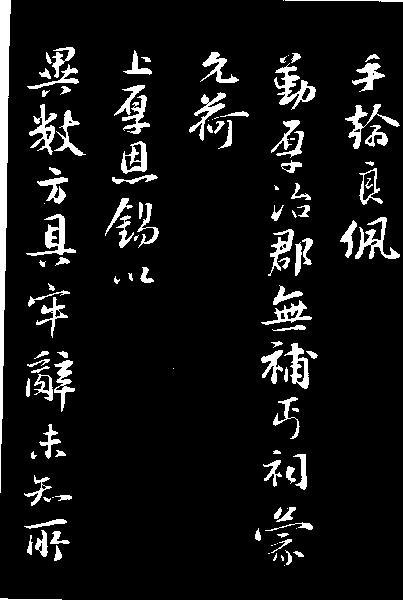 手翰良佩
勤厚治郡無補丐祠蒙
允荷
上厚恩錫以
異數方具牢辭未知所